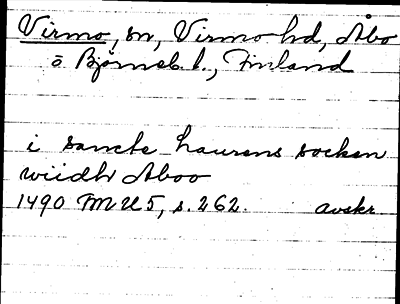 Virmo, sn, Virmo hd, Åbo
o Björneb. l., Finland
i sancte Laurens socken
wiidh Aboo
1490 FMU 5, s. 262. avskr.